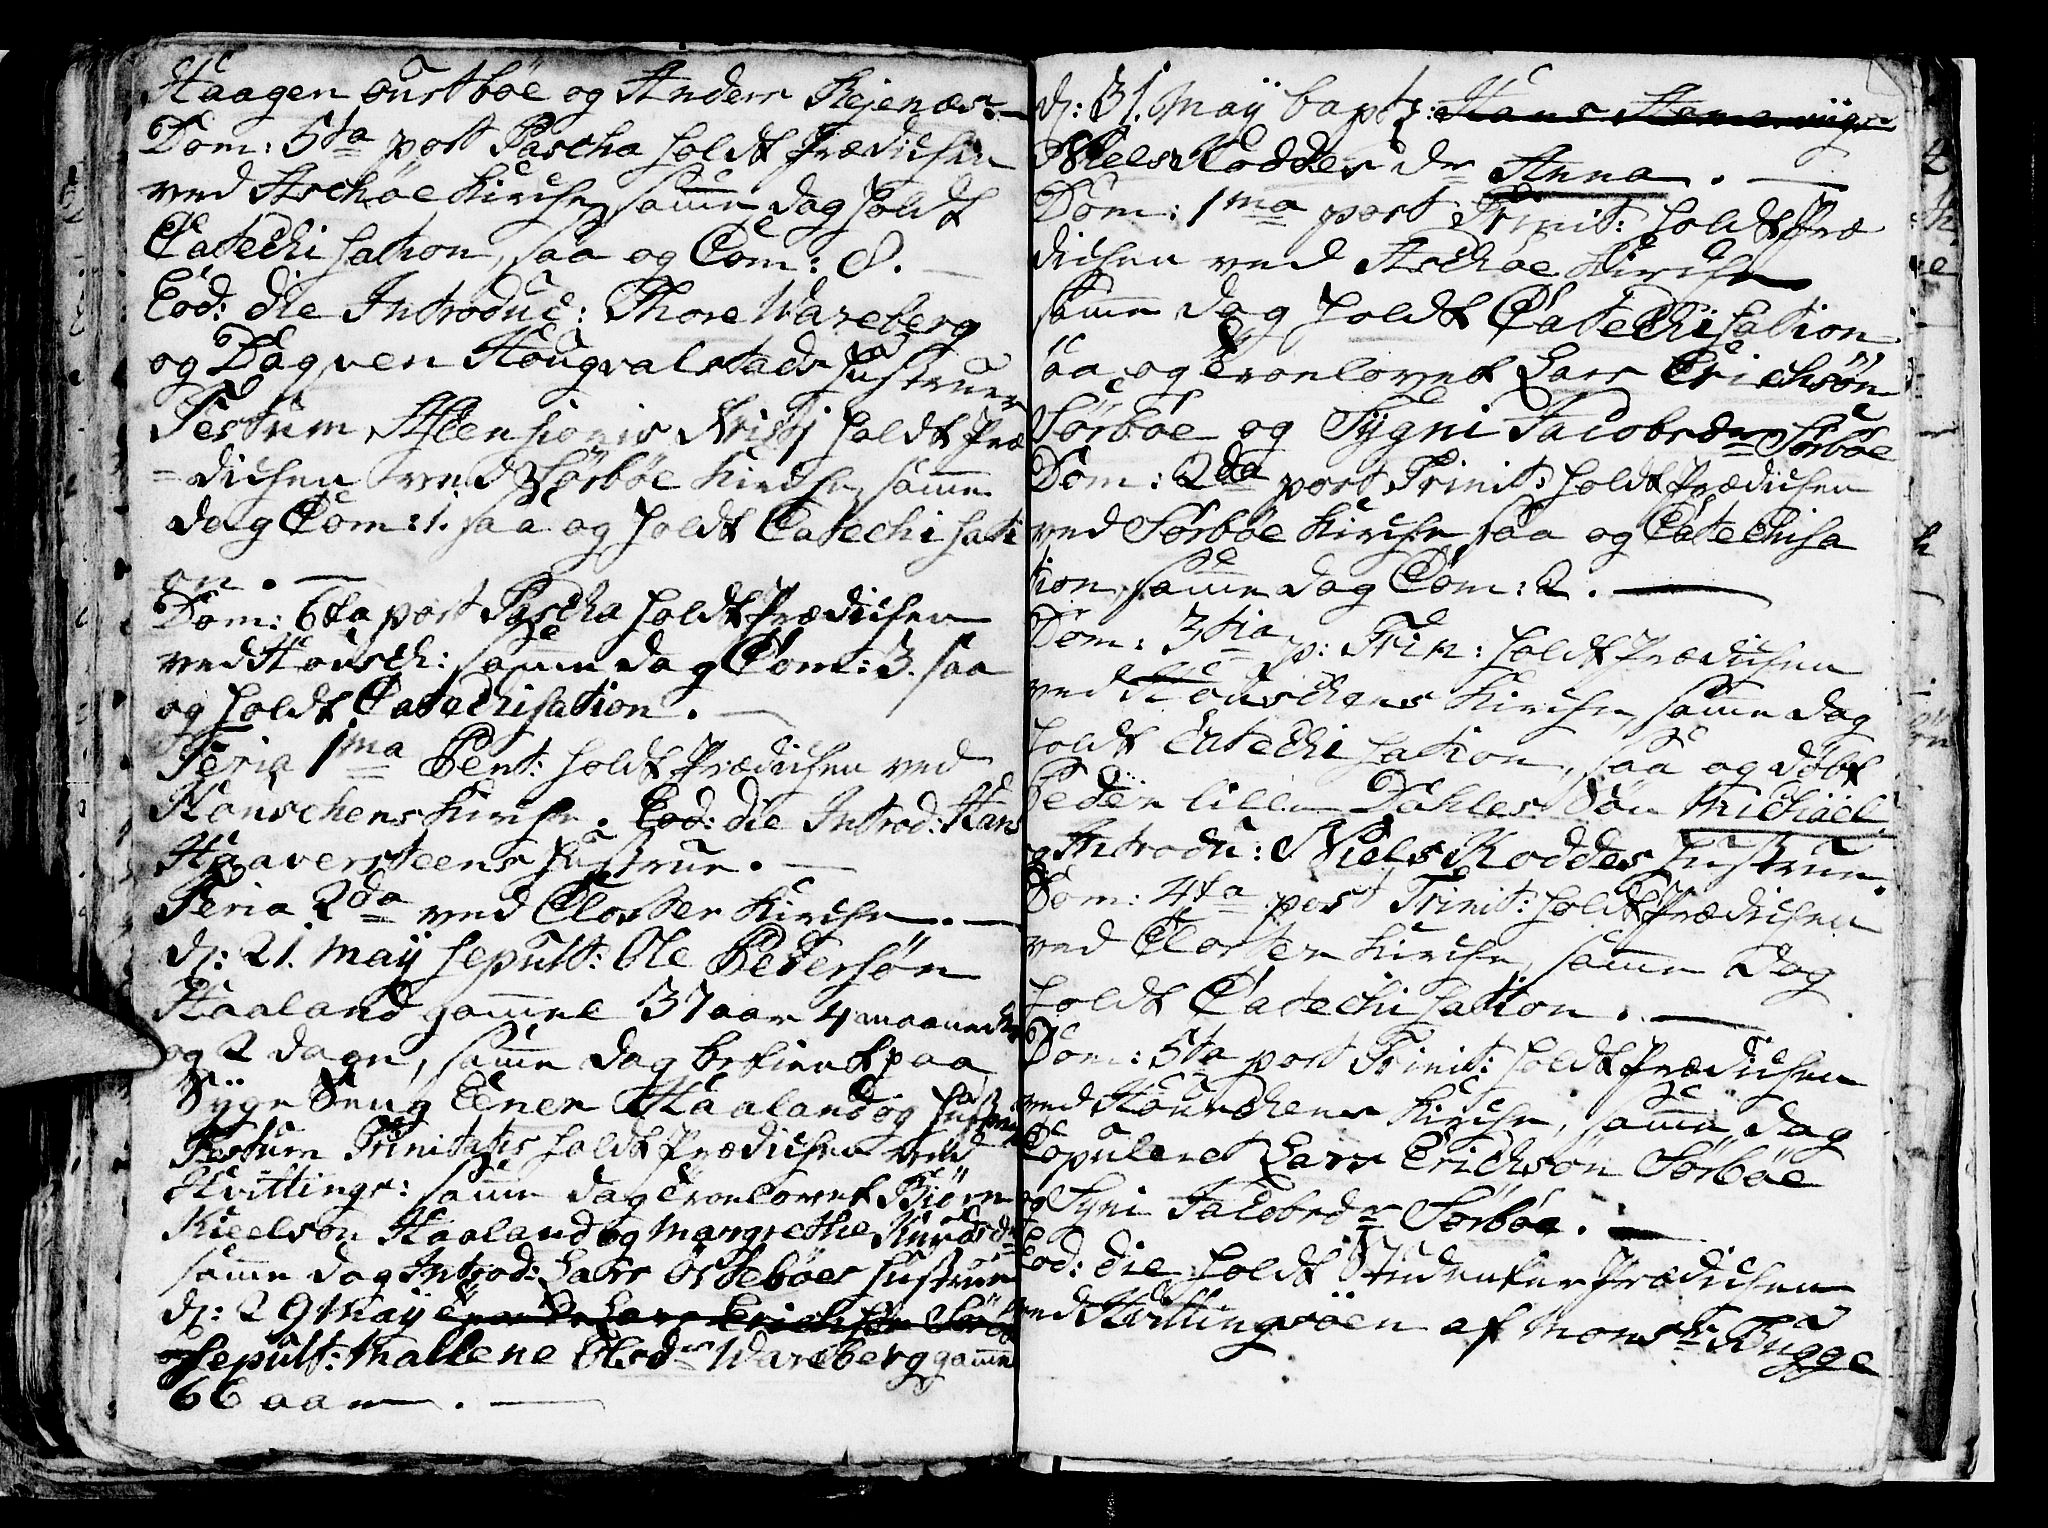 Haagen Oustböe og Anders Rejenæs. —
Dom: 5ta post Pascha holdt Prædichen
ved Aschöe Kirche, samme dag holdt
Catechisation, saa og Com: 8. —
Eod: die Introduc: Thore Wareberg
og Dagven Hougvalstads Hustruer
Festum Ascensionis Kristj holdt Præ
=dichen ved Sörböe Kirche, samme
dag Com: 1. saa og holdt Catechisati
on. —
Dom: 6ta post Pascha holdt Prædichen
ved Housch: samme dag Com: 3. saa
og holdt Catechisation. —
Feria 1ma Pent: holdt Prædichen ved
Houschens Kirche. Eod: die Introd: Hans
Haaversteens Hustrue. —
Feria 2da ved Closter Kirche. —
d: 21. Maÿ sepult: Ole Pedersön
Haaland gammel 37 aar 4 maaneder
og 2 dage, samme dag betient paa
Sÿge Seng Eener Haaland og Hustrue
Festum Trinitatis holdt Prædichen ved
Hvittings: samme dag Troelovet Biören
Kieelson Haaland og Margrethe Knudsdr
samme dag Introd: Lars Östeböes Hustrue
d: 29 Maÿ Lars Erichsen Sörb
og sepult: Mallene Olsdr Wareberg gamme
66 aar. —
d: 31. Maÿ bapt: Hans
Niels Roddes dr Anna. —
Dom: 1ma post Trinit: holdt Præ
dichen ved Aschöe Kirche
samme dag holdt Catechisation
saa og Troelovet Lars Erichsön
Sörböe og Sygni Jacobsdr Sörböe
Dom: 2da post Trinit: holdt Prædichen
ved Sörböe Kirche saa og Catechisa
tion, samme dag Com: 2. —
Dom: 3tia p: Trin: holdt Prædichen
ved Houschens Kirche, samme dag
holdt Catechisation, saa og döbt
Peder lille Dahles Sön Michäel.
og Introdu: Niels Roddes Hustrue.
Dom: 4ta post Trinit: holdt Prædichen
ved Closter Kirche, samme Dag
holdt Catechisation. —
Dom: 5ta post Trinit: holdt Prædichen
ved Houschens Kirche, samme dag
Copuleret Lars Erichsön Sörböe
og Syni Jacobsdr Sörböe. —
Eod: die holdt Studenter Prædichen
ved Hvittingsöen af Monsr Bugge